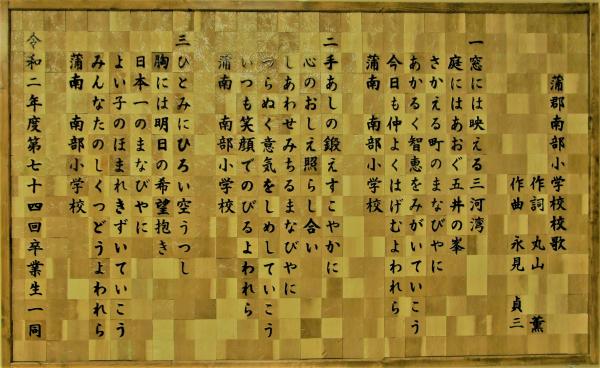 蒲郡南部小学校校歌
作詞 丸山 薫
作曲 永見 貞三
一 窓には映える三河湾
庭にはあおぐ五井の峯
さかえる町のまなびやに
あかるく智恵をみがいていこう
今日も仲よくはげむよわれら
蒲南 南部小学校
二 手あしの鍛えすこやかに
心のおしえ照らし合い
しあわせみちるまなびやに
つらぬく意気をしめしていこう
いつも笑顔でのびるよわれら
蒲南 南部小学校
三 ひとみにひろい空うつし
胸には明日の希望抱き
日本一のまなびやに
よい子のほまれきずいていこう
みんなたのしくつどうよわれら
蒲南 南部小学校
令和二年度第七十四回卒業生一同